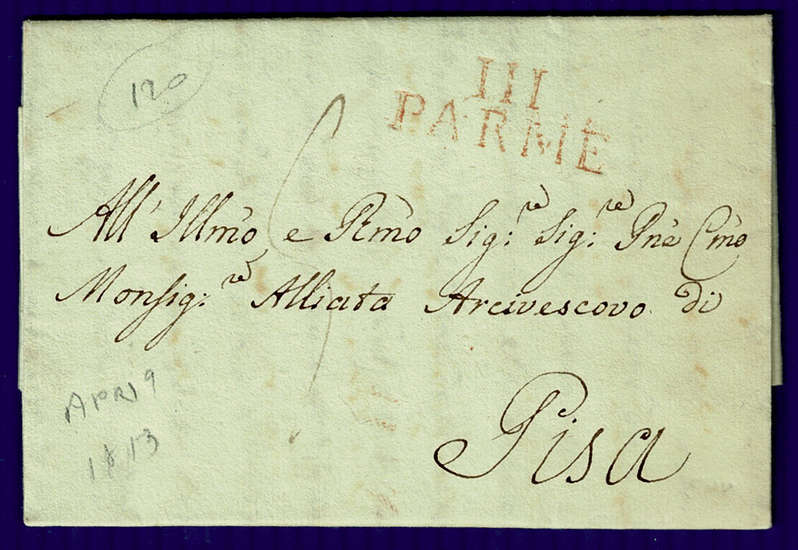 120
III
PARME
All' Illmo e Rmo Sig:re Sig:re Pne Cmo
Monsig:re Alliata Arcivescovo di
Pisa
APRI 9
1813